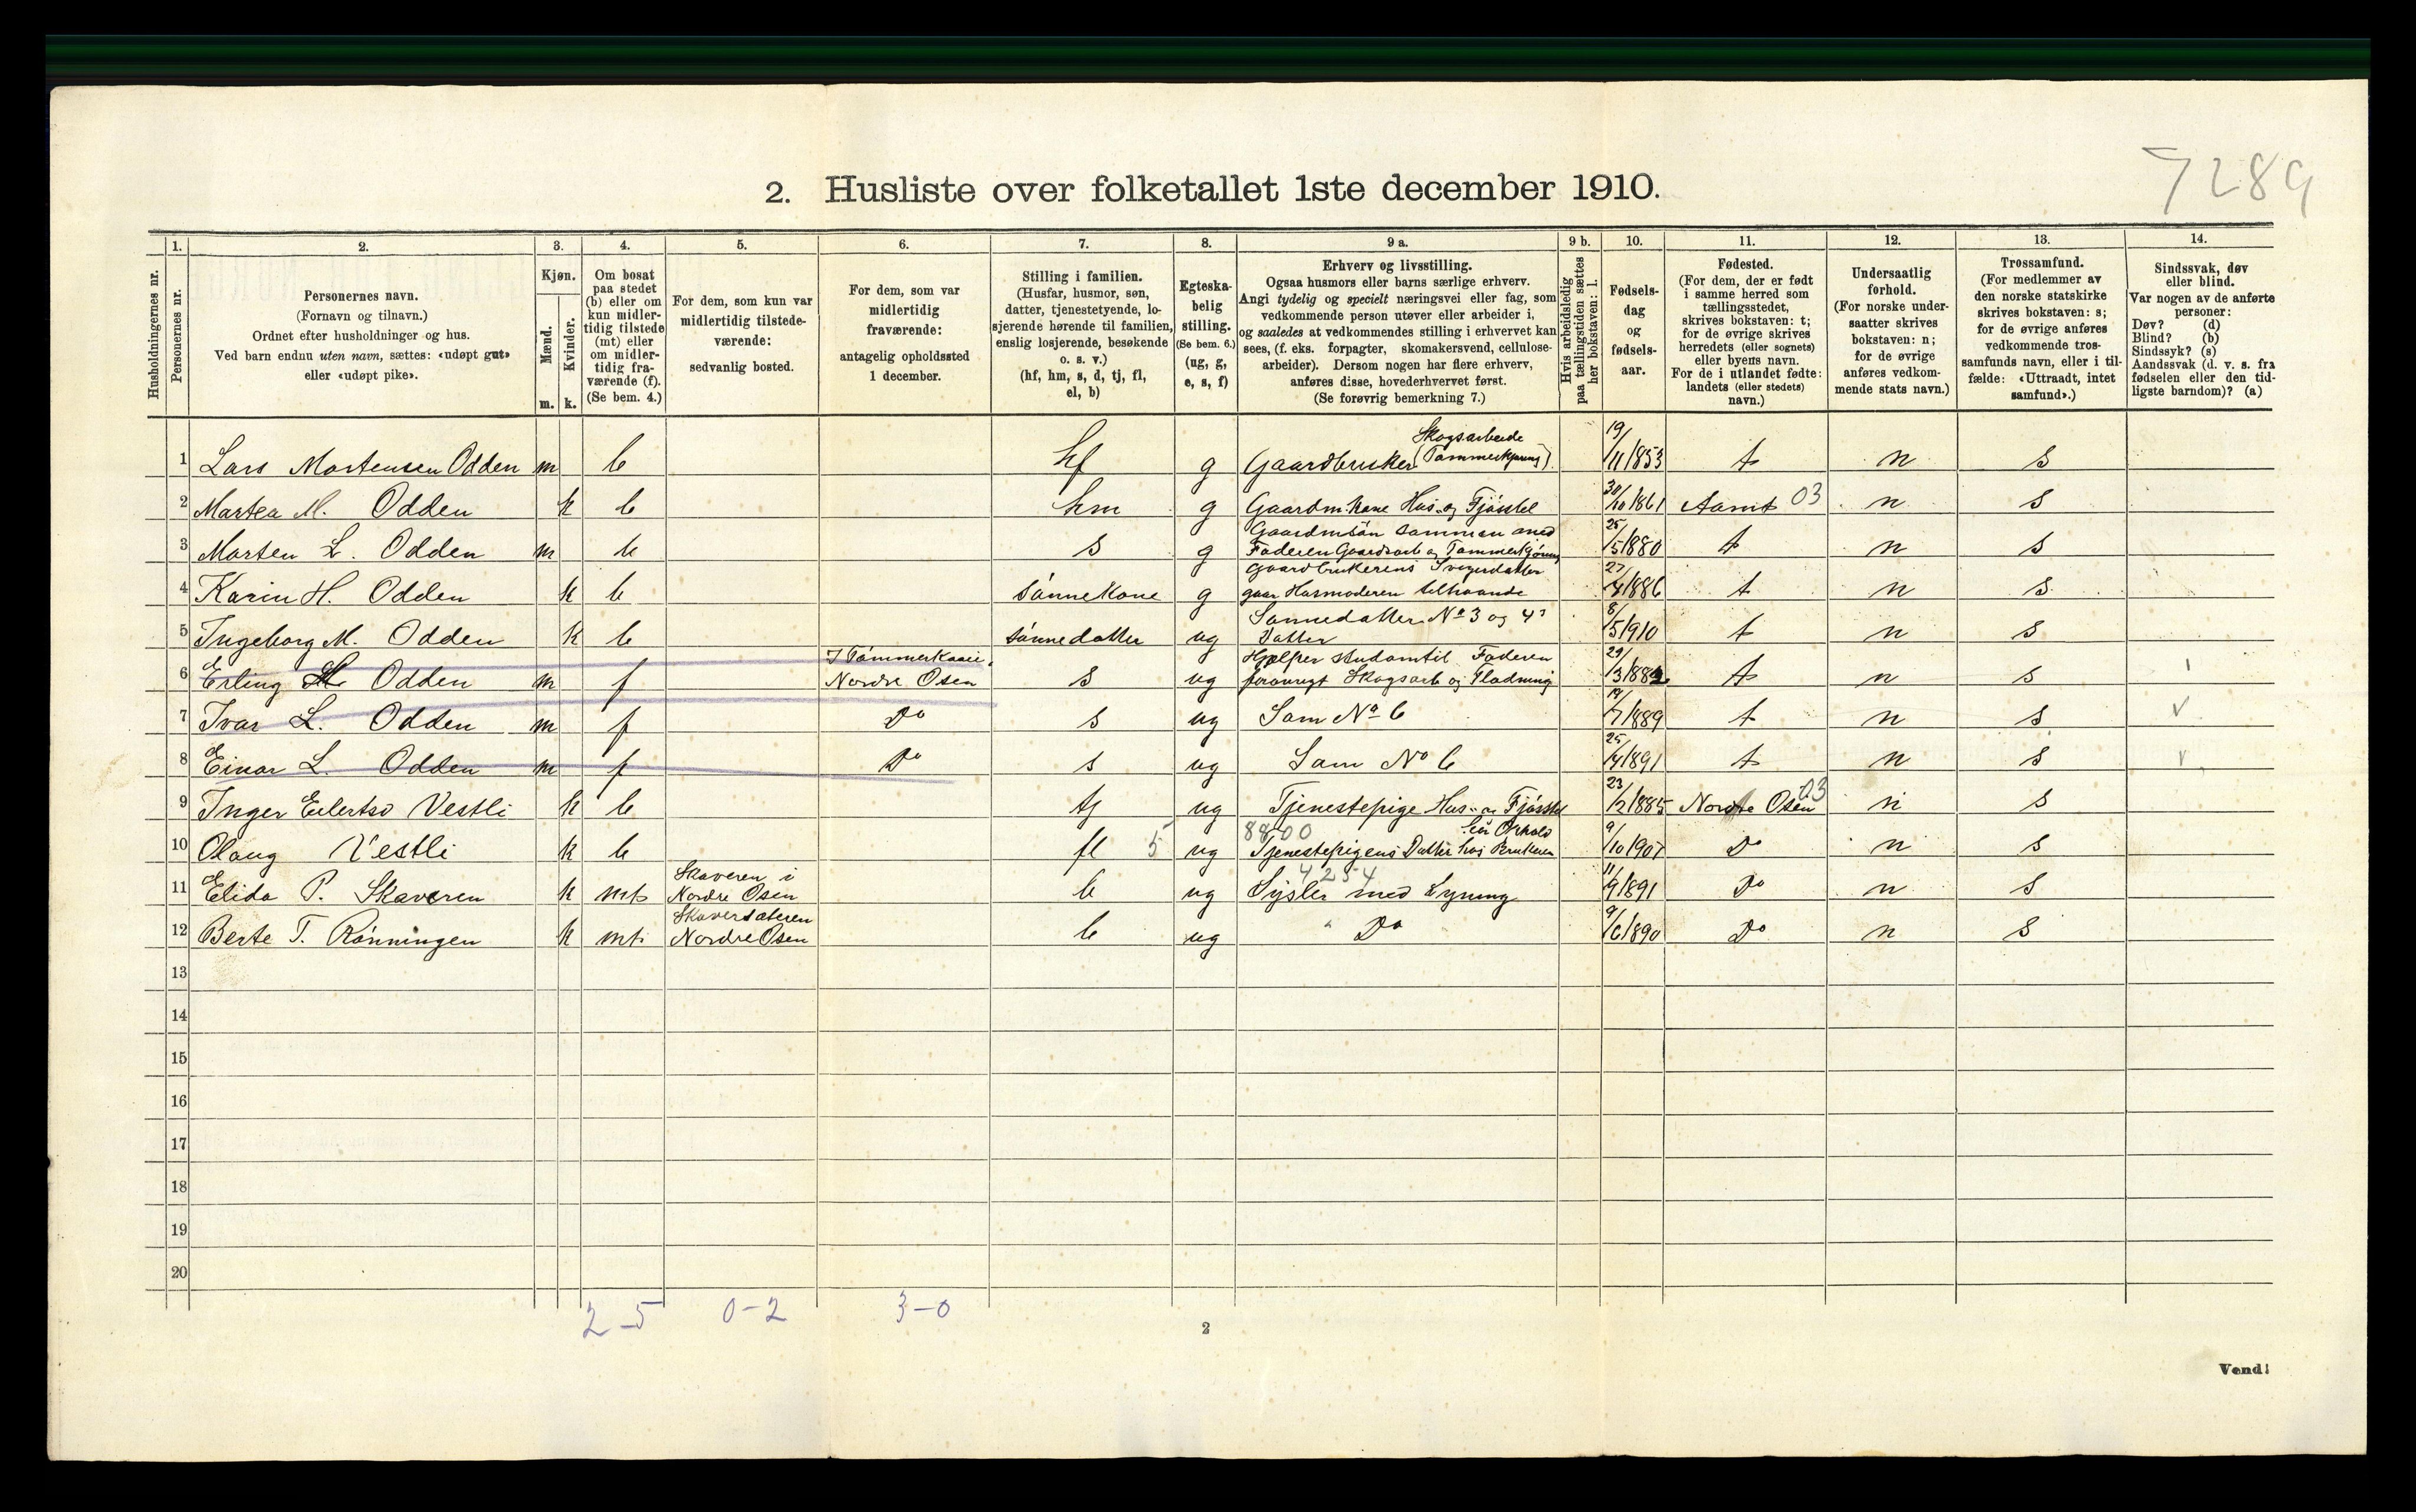 7289
2. Husliste over folketallet 1ste december 1910.
Husholdningernes nr.
1. Personernes nr.
2. Personernes navn.
(Fornavn og tilnavn.)
Ordnet efter husholdninger og hus.
Ved barn endnu uten navn, sættes: «udøpt gut»
eller «udøpt pike».
3. Kjøn.
Mænd. m.
Kvinder. k.
4. Om bosat
paa stedet
(b) eller om
kun midler-
tidig tilstede
(mt) eller
om midler-
tidig fra-
værende (f).
(Se bem. 4.)
5. For dem, som kun var
midlertidig tilstede-
værende:
sedvanlig bosted.
6. For dem, som var
midlertidig
fraværende:
antagelig opholdssted
1 december.
7. Stilling i familien.
(Husfar, husmor, søn,
datter, tjenestetyende, lo-
sjerende hørende til familien,
enslig losjerende, besøkende
o. s. v.)
(hf, hm, s, d, tj, fl,
el, b)
8. Egteska-
belig
stilling.
(Se bem. 6.)
(ug, g,
e, s, f)
9 a. Erhverv og livsstilling.
Ogsaa husmors eller barns særlige erhverv.
Angi tydelig og specielt næringsvei eller fag, som
vedkommende person utøver eller arbeider i,
og saaledes at vedkommendes stilling i erhvervet kan
sees, (f. eks. forpagter, skomakersvend, cellulose-
arbeider). Dersom nogen har flere erhverv,
anføres disse, hovederhvervet først.
(Se forøvrig bemerkning 7.)
9 b. Hvis arbeidsledig
paa tællingstiden sættes
her bokstaven: l.
10. Fødsels-
dag
og
fødsels-
aar.
11. Fødested.
(For dem, der er født
i samme herred som
tællingsstedet,
skrives bokstaven: t;
for de øvrige skrives
herredets (eller sognets)
eller byens navn.
For de i utlandet fødte:
landets (eller stedets)
navn.)
12. Undersaatlig
forhold.
(For norske under-
saatter skrives
bokstaven: n;
for de øvrige
anføres vedkom-
mende stats navn.)
13. Trossamfund.
(For medlemmer av
den norske statskirke
skrives bokstaven: s;
for de øvrige anføres
vedkommende tros-
samfunds navn, eller i til-
fælde: «Uttraadt, intet
samfund».)
14. Sindssvak, døv
eller blind.
Var nogen av de anførte
personer:
Døv? (d)
Blind? (b)
Sindssyk? (s)
Aandssvak (d. v. s. fra
fødselen eller den tid-
ligste barndom)? (a)
Skogsarbeide
1 Lars Mortensen Odden m b hf g Gaardbruker (Tømmerkjøring) 19/11/1853 t n s
2 Martea M. Odden k b hm g Gaardm. Kone Hus- og Fjösstel 30/10/1861 Aamot 03 n s
Gaardmsön sammen med
3 Morten L. Odden m b s g Faderen Gaardsarb og Tømmerkjöring 25/5/1880 t n s
Gaardbrukerens Svigerdatter
4 Karin H. Odden k b Sönnekone g gaar Husmoderen tilhaande 27/4/1886 t n s
Sønnedatter No 3 og 4s
5 Ingeborg M. Odden k b Sönnedatter ug Datter 8/5/1910 t n s
I Tömmerkoie Hjelper undertil Faderen
6 Erling Odden m f Nordre Osen s ug forövrigt Skogsarb og Flødning 29/3/1882 t n s
7 Ivar L. Odden m f Do s ug Som No 6 19/7/1889 t n s v
8 Einar L. Odden m f Do s ug Som No 6 25/4/1891 t n s v
9 Inger Eilertsd Vestli k b tj ug Tjenestepige Hus- og Fjösstel 23/2/1885 Nordre Osen 03 n s
8800
10 Olaug Vestli k b fl 5 ug Tjenestepigens Datter hos Brukeren 9/10/1907 Do n s
Skaveren i 4254
11 Elida P. Skaveren k mt Nordre Osen b ug Sysler med Syning 11/9/1891 Do n s
12 Berte T. Rönningen k mt Nordre Osen b ug Do 9/6/1890 Do n s
13
14
15
16
17
18
19
20
2-5 0-2 3-0
2
Vend!